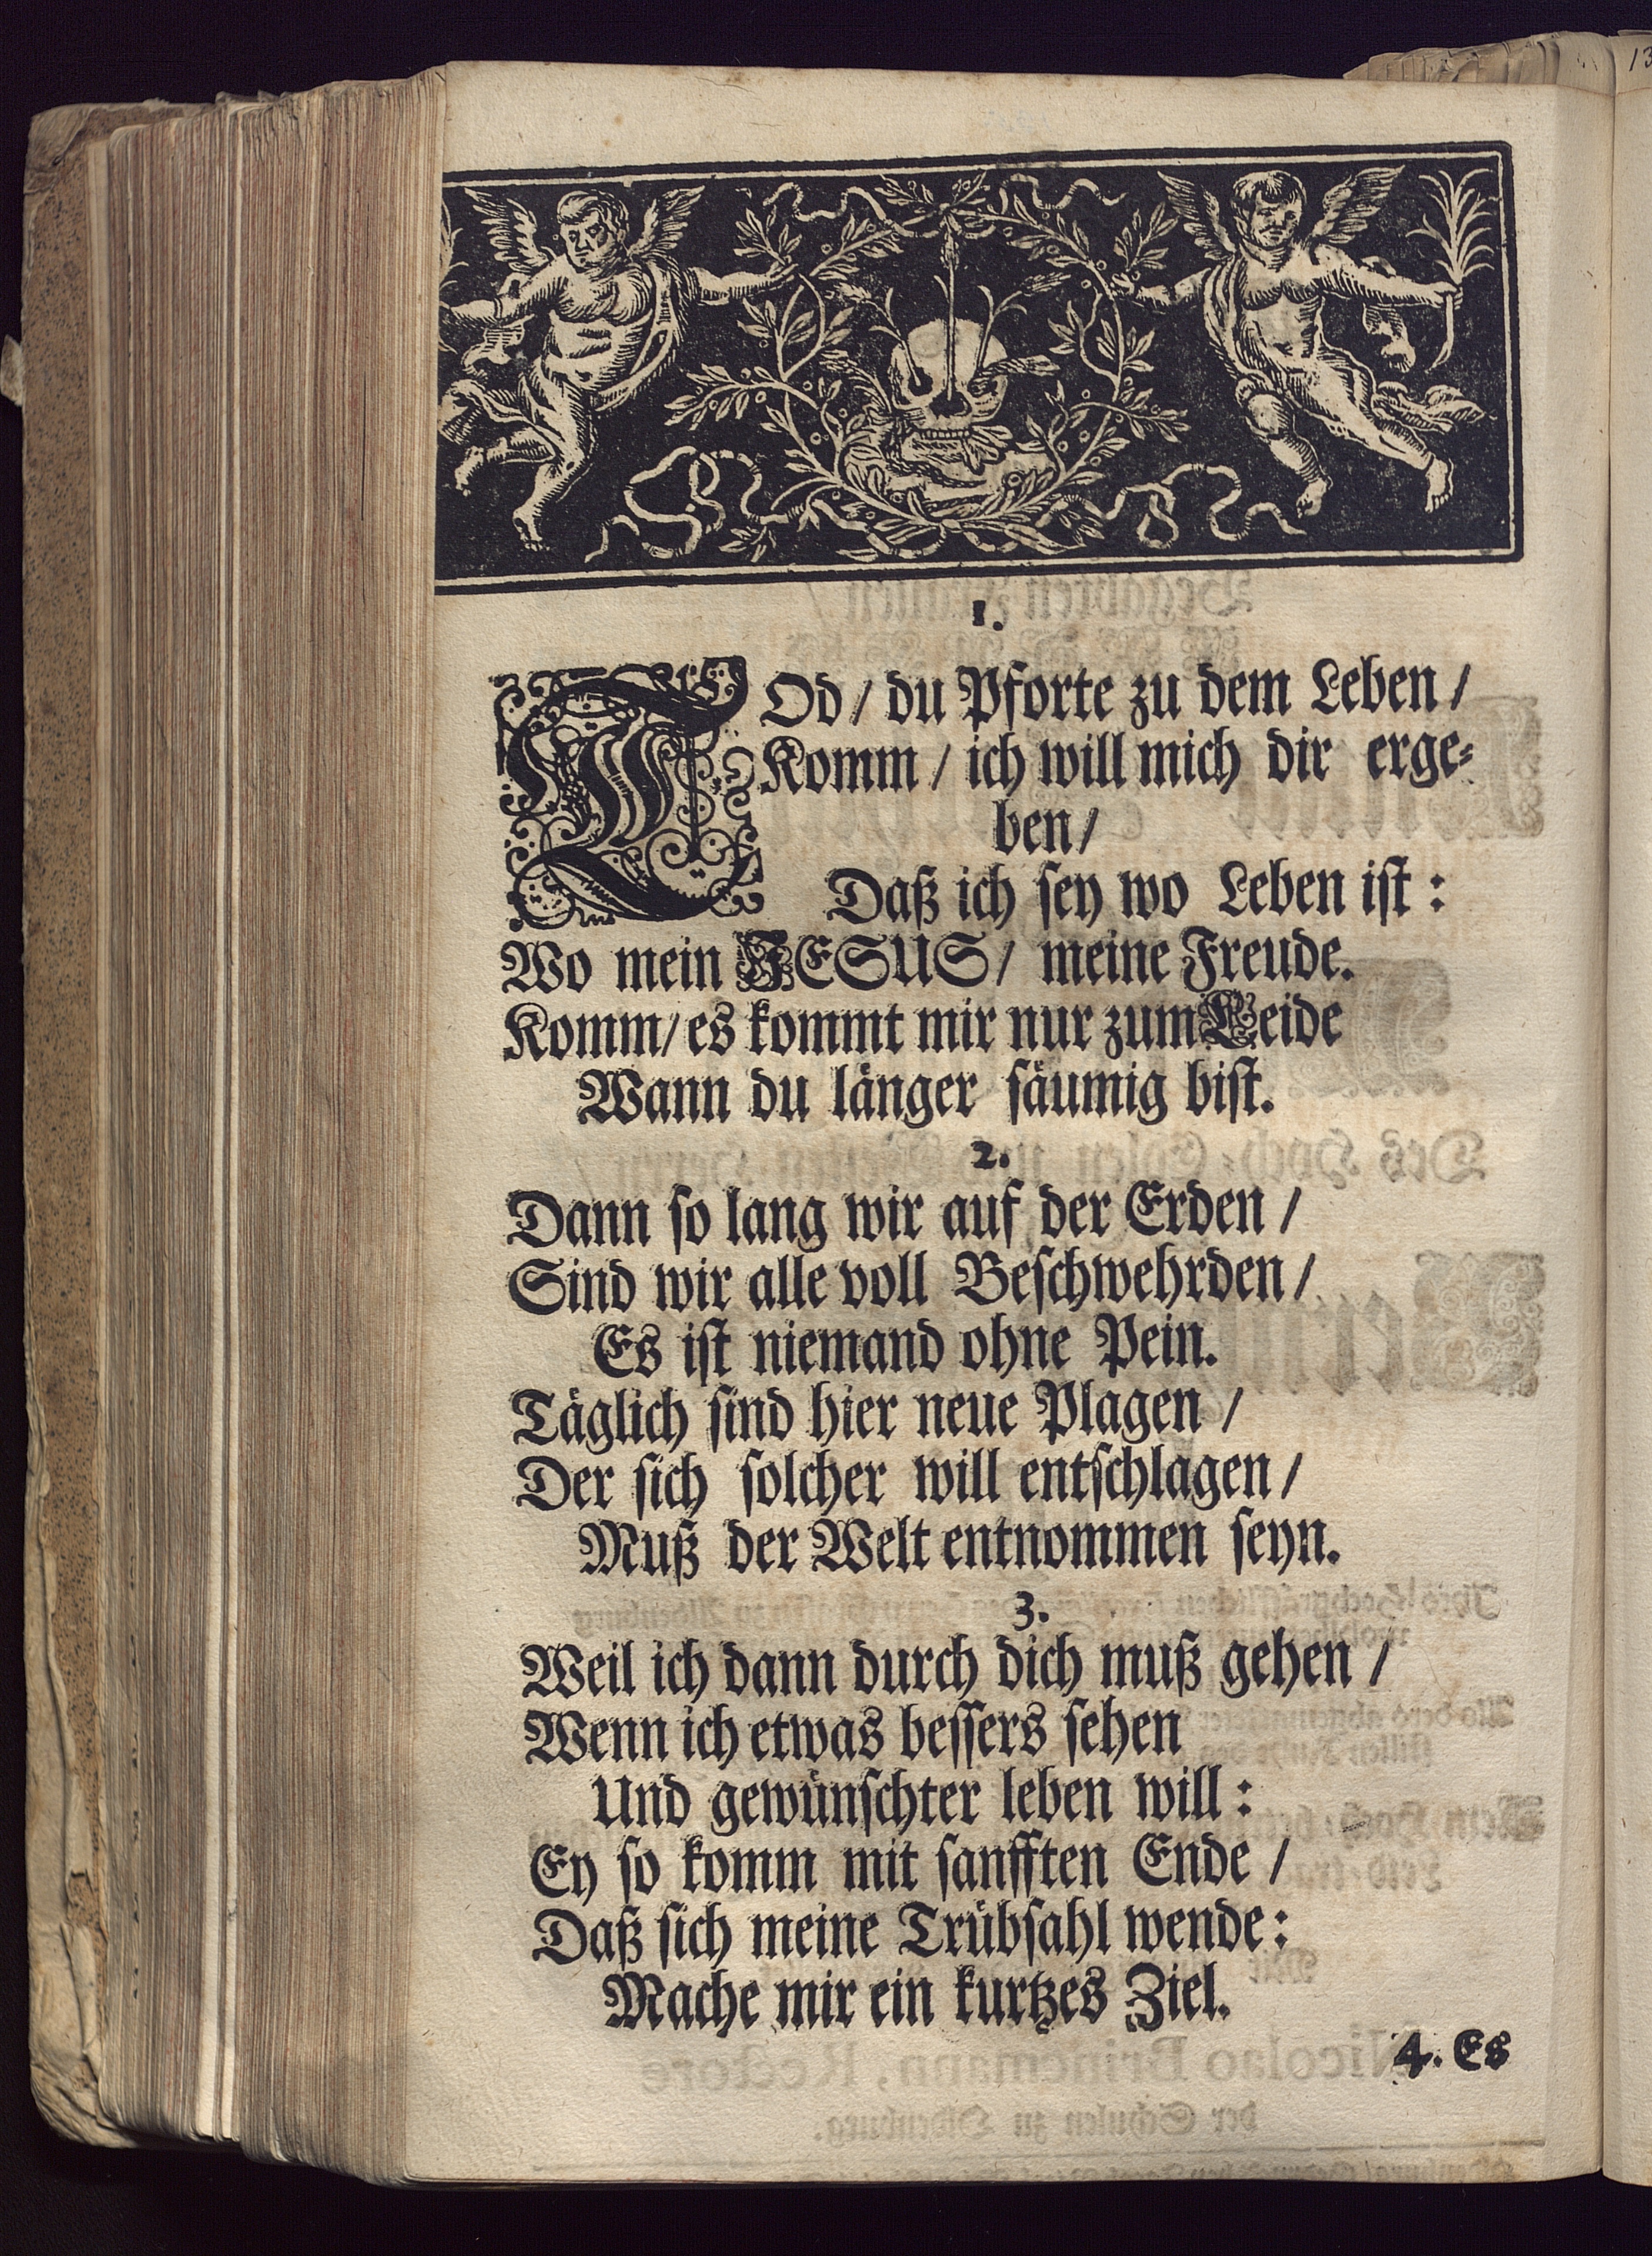 1.
TOd / du Pforte zu dem Leben /
Komm / ich will mich dir erge⸗
ben /
Daß ich sey wo Leben ist :
Wo mein JESUS / meine Freude.
Komm / es kommt mir nur zum Leide
Wann du länger säumig bist.
2.
Dann so lang wir auf der Erden /
Sind wir alle voll Beschwehrden /
Es ist niemand ohne Pein.
Täglich sind hier neue Plagen /
Der sich solcher will entschlagen /
Muß der Welt entnommen seyn.
3.
Weil ich dann durch dich muß gehen /
Wenn ich etwas bessers sehen
Und gewünschter leben will :
Ey so komm mit sanfften Ende /
Daß sich meine Trübsahl wende :
Mache mir ein kurtzes Ziel.
4. Es